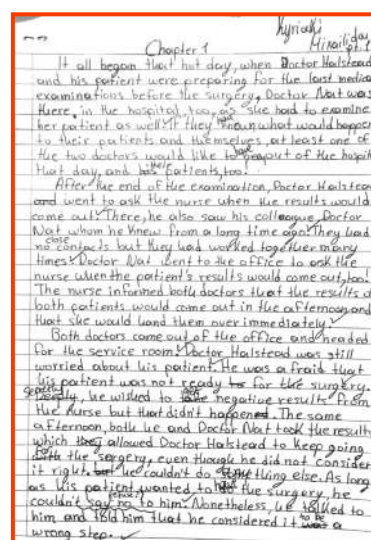 Kyriaki
Chapter 1
It all began that hot day, when Doctor Halstead
and his patient were preparing for the last medical
examinations before the surgery. Doctor Nat was
there, in the hospital, too, as she had to examine
her patient as well. If they knew what would happen
to their patients and themselves, at least one of
the two doctors would like to out of the hospital
that day, and patients, too.
After the end of the examination, Doctor Halstead
and went to ask the nurse when the results would
come out. There, he also saw his colleague, Doctor
Nat whom he knew from a long time ago. They had
close
no contacts but they had worked together many
times. Doctor Nat went to the office to ask the
nurse when the patient's results would come out, too.
The nurse informed both doctors that the results of
both patients would come out in the afternoon and
that she would hand them over immediately.
Both doctors came out of the office and headed
for the service room. Doctor Halstead was still
worried about his patient. He was afraid that
his patient was not ready for the surgery.
he wished to negative results from
the nurse but that didn't happened. The same
afternoon, both he and Doctor Nat took the results
which they allowed Doctor Halstead to keep going
with the surgery, even though he did not consider
it right. he couldn't do something else. As long
as his patient wanted to the surgery, he
couldn't say no to him. Nonetheless, he talked to
him and told him that he considered it a
wrong step.